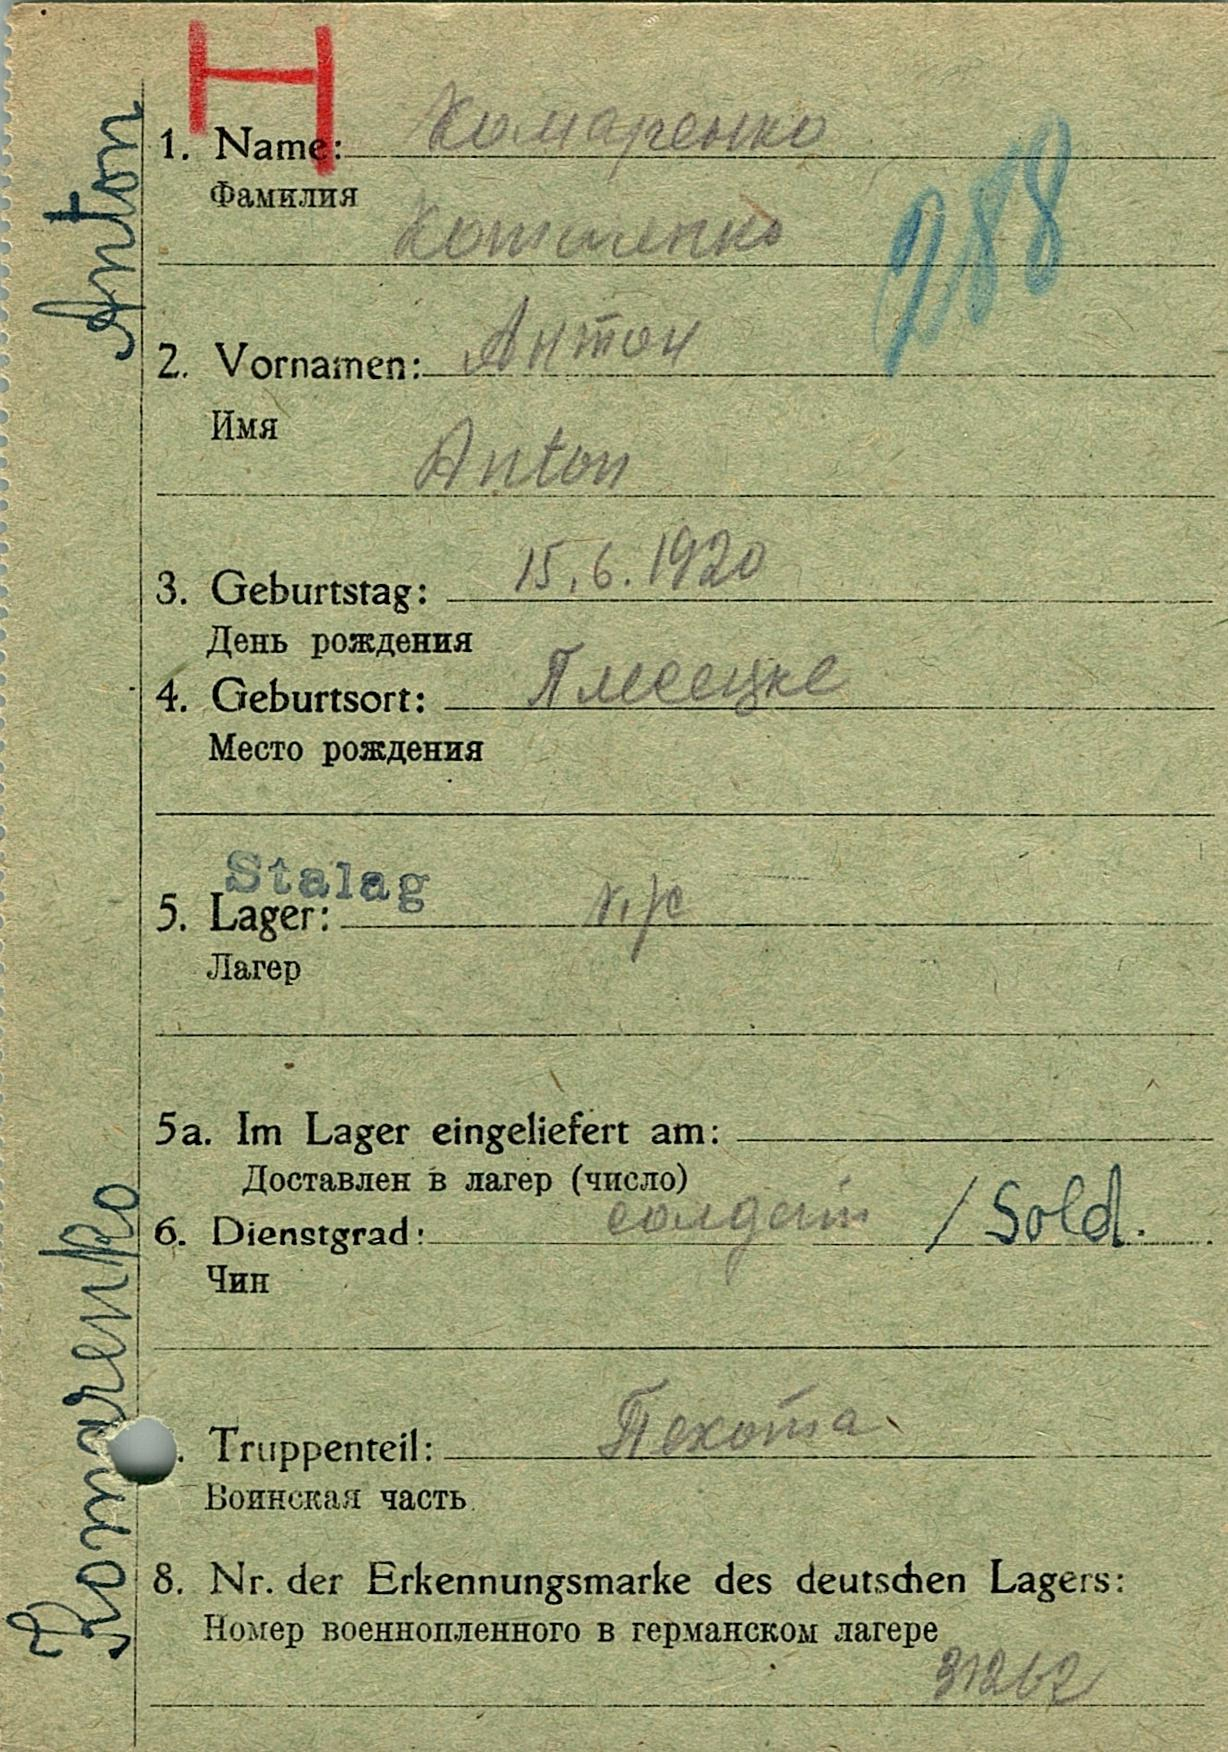 H
Anton
1. Name: Комаренко
Фамилия
288
2. Vornamen: Антон
Имя
Anton
3. Geburtstag: 15.6.1920
День рождения
4. Geburtsort:
Место рождения
Stalag
5. Lager:
Лагер
5a. Im Lager eingeliefert am:
Доставлен в лагер (число)
6. Dienstgrad: солдат / Sold.
Чин
Truppenteil: Пехота
Воинская часть
8. Nr. der Erkennungsmarke des deutschen Lagers:
Номер военнопленного в германском лагере
31262
Komarenko